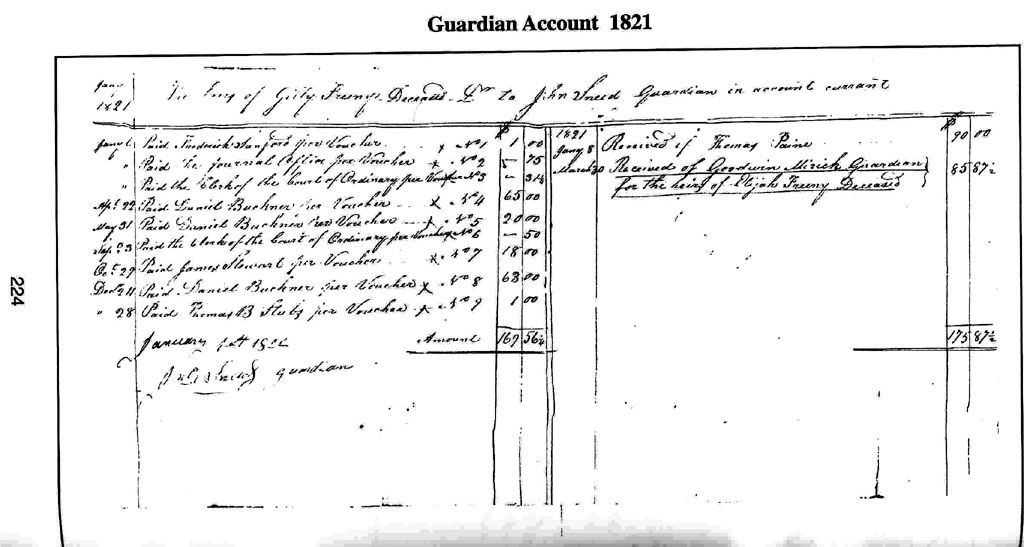 Guardian Account 1821
Jany 1 1821
of Gilly Freeny Deceased Dr to John Sneed Guardian in account currant
Jany 6 Paid Fredrick Sanford per Voucher x No 1 1 00
" Paid The journal Office per Voucher x No 2 5 75
" Paid the Clerk of the Court of Ordinary per Voucher No 3 - 31¼
Apl 22 Paid Daniel Buckner per Voucher x No 4 65 00
May 31 Paid Daniel Buckner per Voucher x No 5 20 00
Sep. 3 Paid the Clerk of the Court of Ordinary per Voucher No 6 - 50
Oct. 29 Paid James Stewart per Voucher x No 7 18 00
Decr 24 Paid Daniel Buckner per Voucher x No 8 63 00
" 28 Paid Thomas B Stubs per Voucher x No 9 1 00
January 1822 Amount 169 56¼
Sneed guardian
$
1821
Jany 8 Received of Thomas Paine 90 00
March 30 Received of Goodwin Mirick Guardian
for the heirs of Elijah Freeny Deceased } 85 87½
175 87½
224